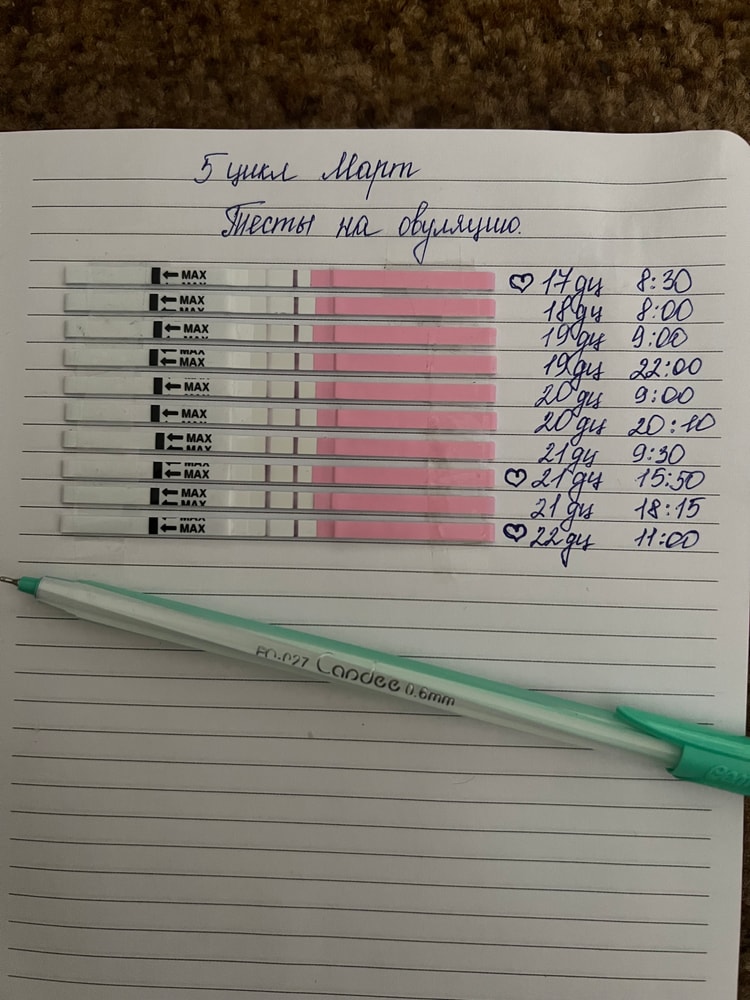 5 цикл Март
Тесты на овуляцию.
MAX 17дц 8:30
MAX 18дц 8:00
MAX 19дц 9:00
MAX 19дц 22:00
MAX 20дц 9:00
MAX 20дц 20:10
MAX 21дц 9:30
MAX 21дц 15:50
MAX 21дц 18:15
MAX 22дц 11:00
Candee 0.6mm